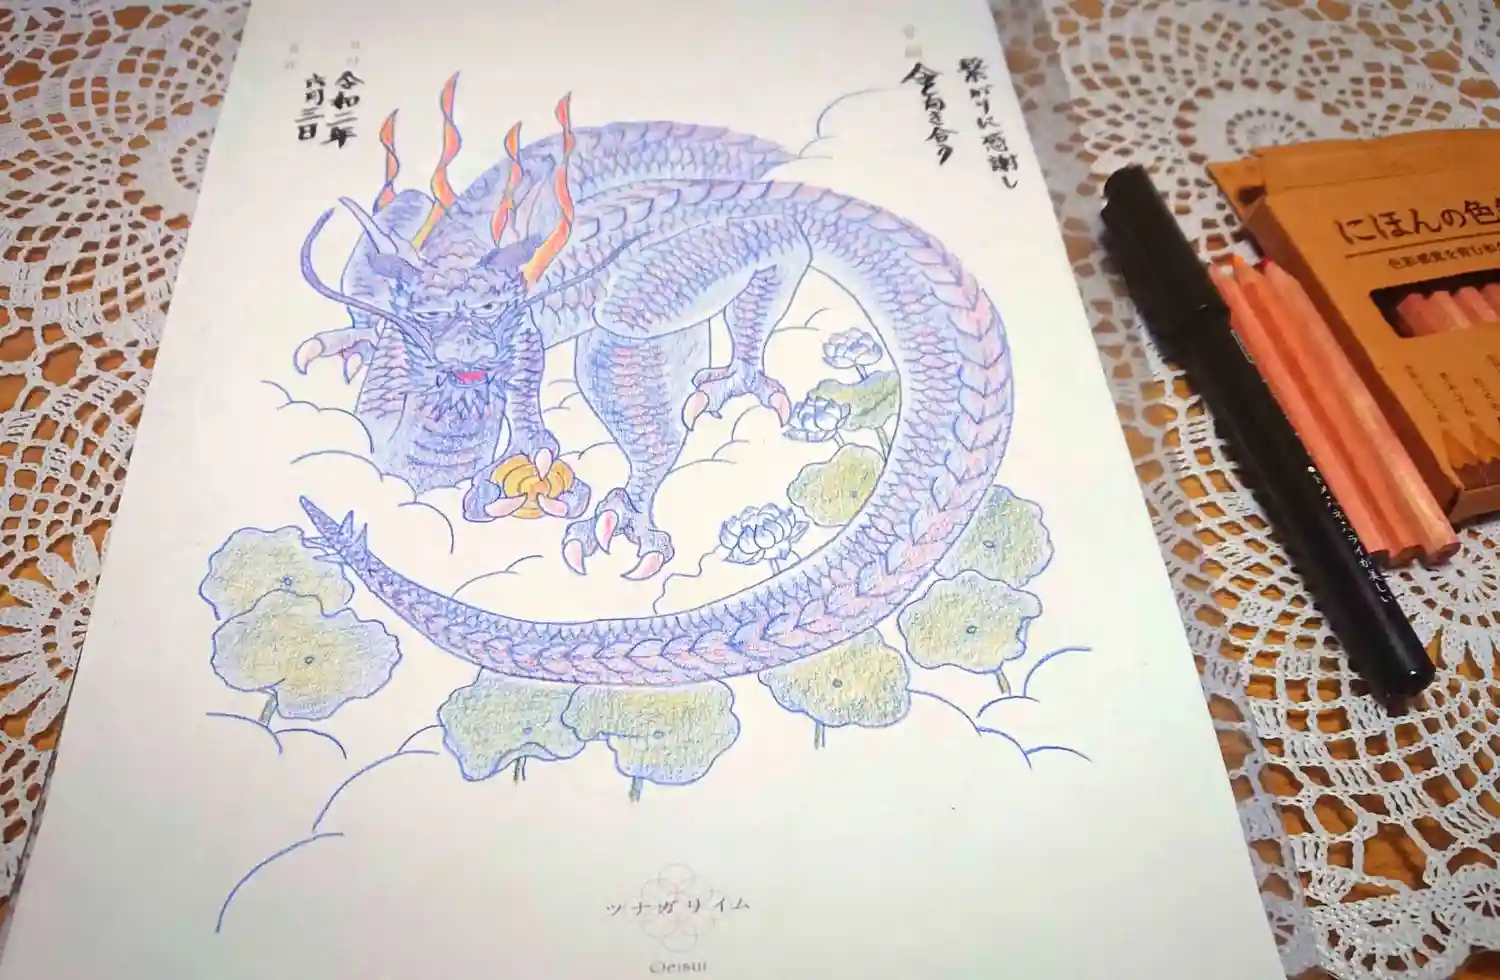 繋がりに感謝し
向き合う
日付
令和二年
六月三日
にほんの色
色彩感覚を育む
トメ・ハネ・ハライが美しい
ツナガリイム